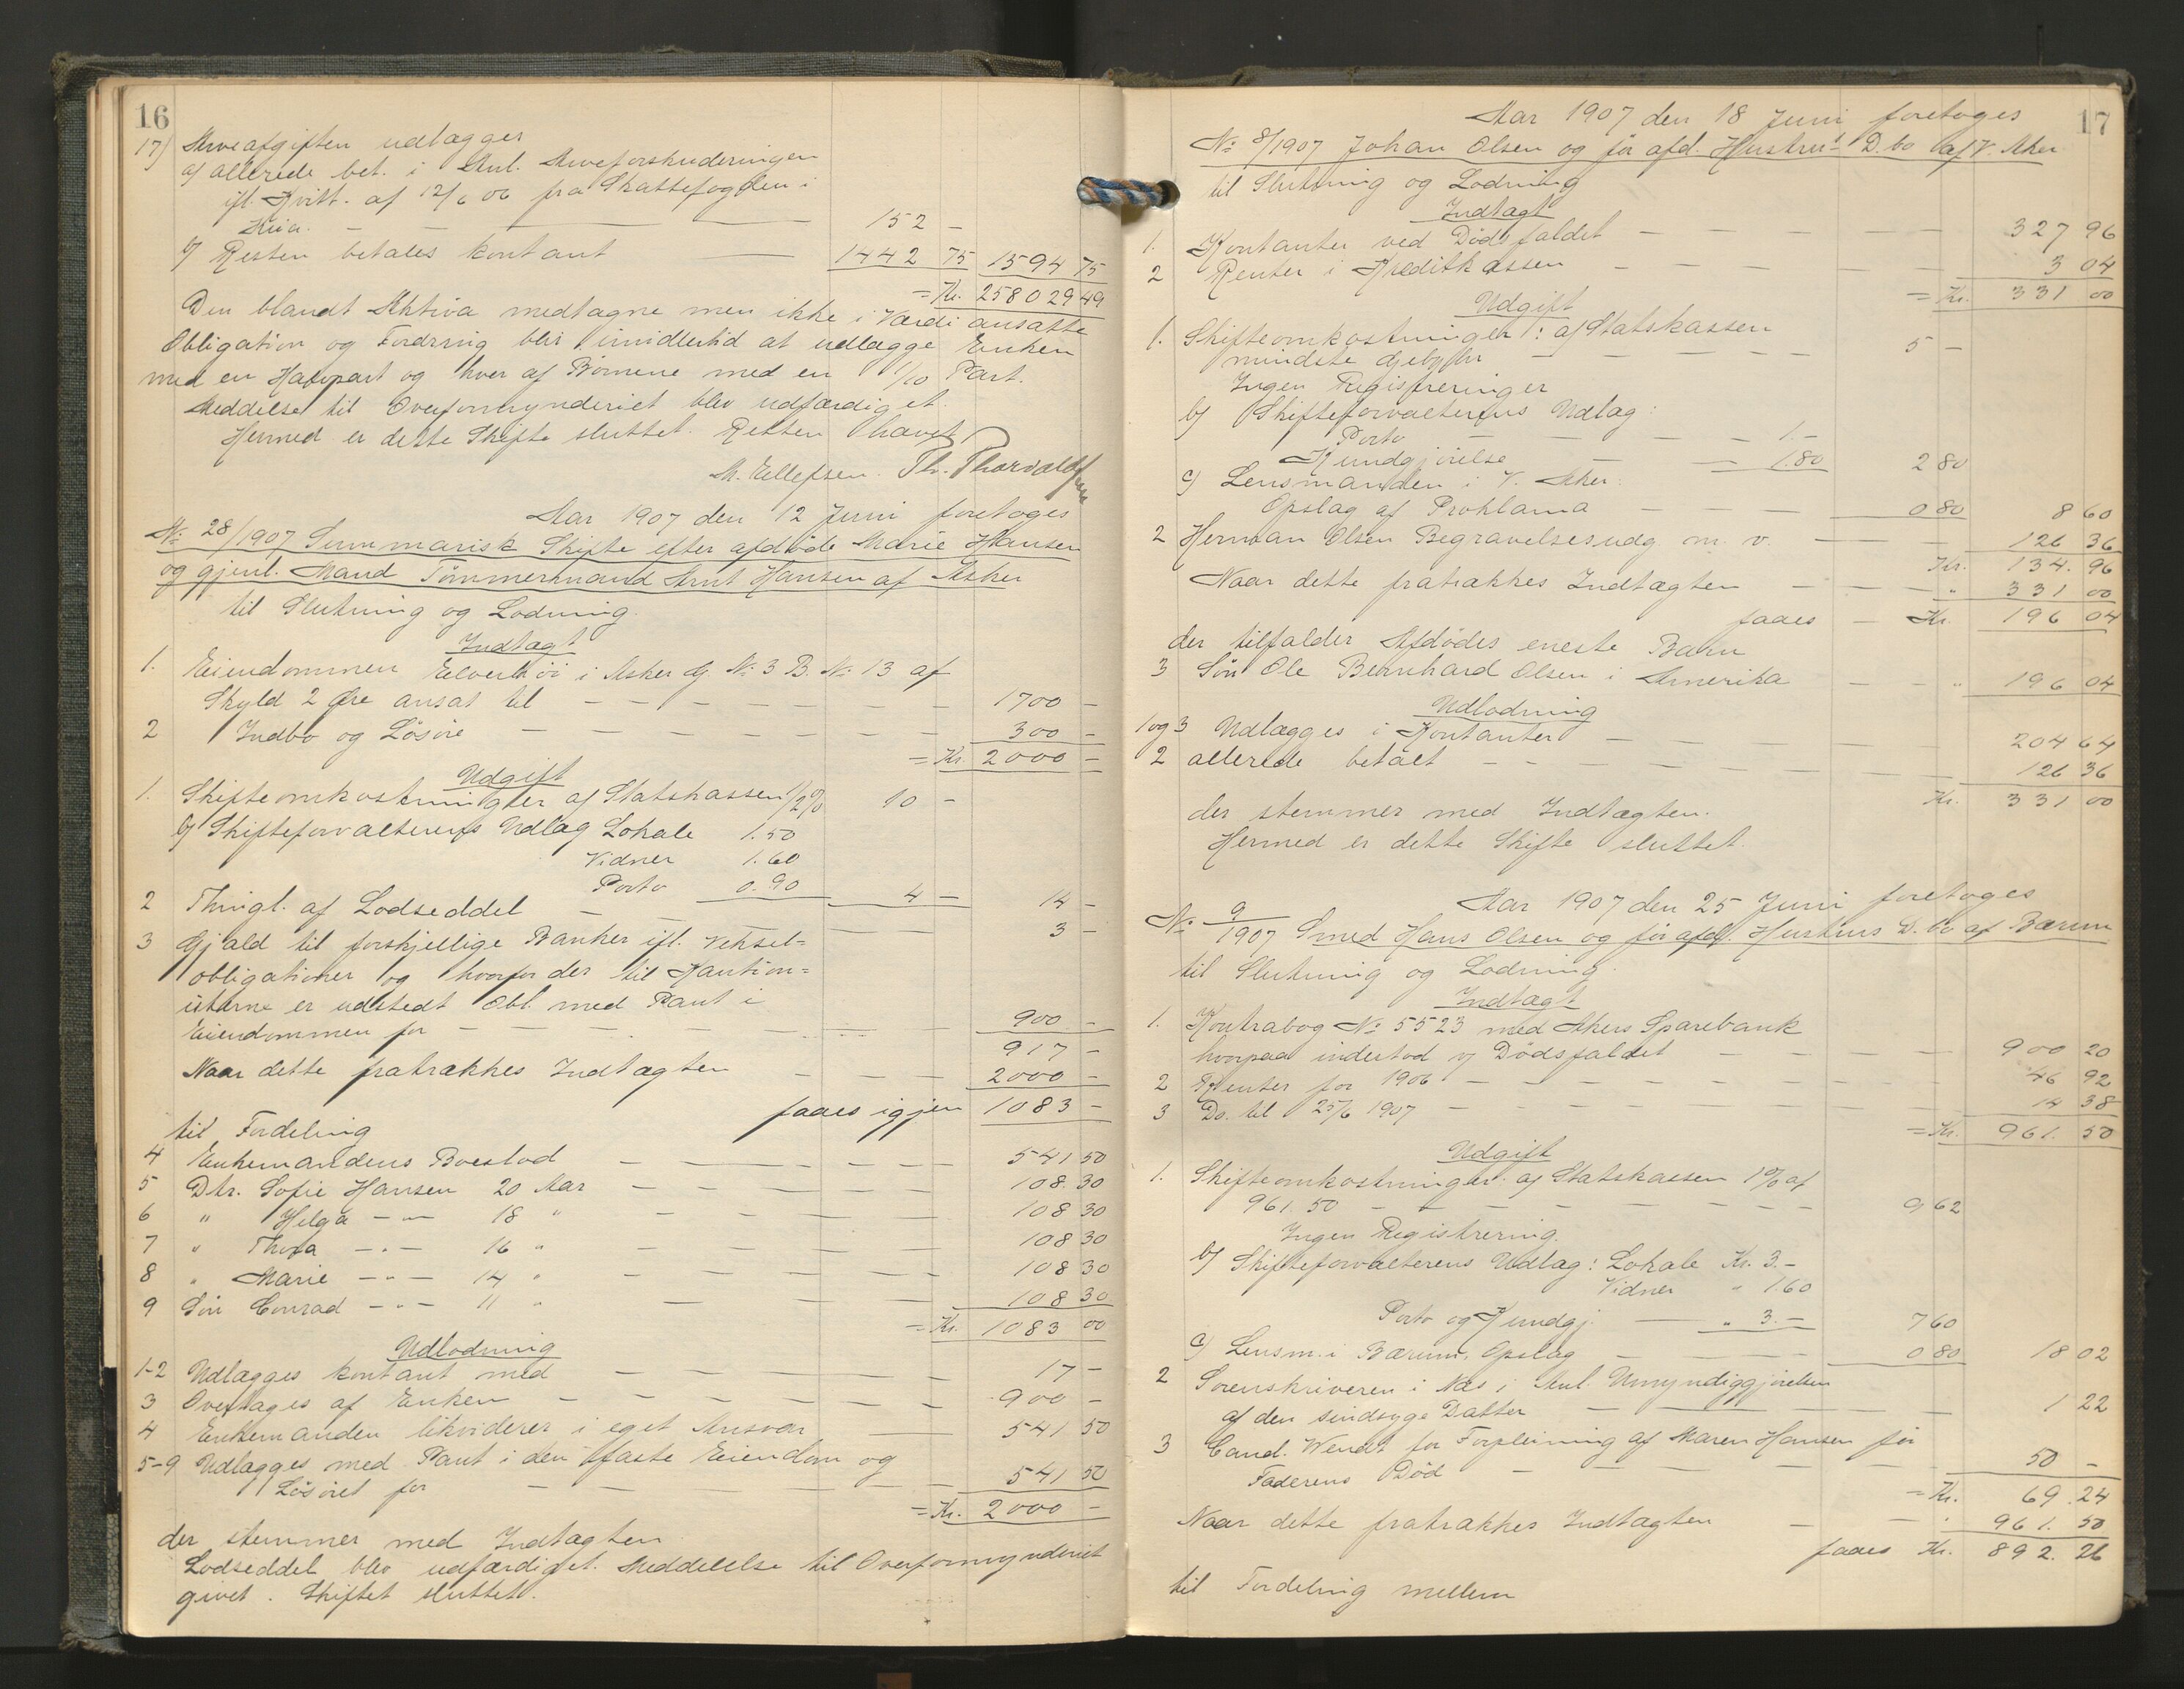 16
17) Arveafgiften udlægges
a) allerede bet. i Anl. Arveforskuderingen
ifl. Kvitt. af 12/6 06 fra Skattefogden i
Kria. — — — 152 –
b) Resten betales kontant — 1442 75 1594 75
= Kr. 258029 49
Den blandt Aktiva medtagne men ikke i Værdi ansatte
Obligation og Fordring blir imidlertid at udlægge Enken
med en Halvpart og hver af Børnene med en 1/10 Part.
Meddelse til Overformynderiet blev udfærdiget.
Hermed er dette Skifte sluttet. Retten hævet
M. Ellefsen. Th. Thorvaldsen
Aar 1907 den 12 Juni foretoges
No 28/1907 Summarisk Skifte efter afdøde Marie Hansen
og gjenl. Mand Tømmermand Arnt Hansen af Asker
til Slutning og Lodning.
Indtægt
1. Eiendommen Elverhøi i Asker G. No 3 B. No 13 af
Skyld 2 Øre ansat til — — — 1700 –
2 Indbo og Løsøre — — — 300 –
= Kr 2000 –
Udgift
1. Skifteomkostninger a) Statskassen 1/2 % 10 –
b) Skifteforvalterens Udlæg Lokale 1.50
Vidner 1.60
Porto 0.90 4 – 14 –
2 Thingl. af Lodseddel — — 3 –
3 Gjæld til forskjellige Banker ifl. Veksel=
obligationer og hvorfor der til Kaution=
isterne er udstedt Obl. med Pant i
Eiendommen for — — — 900 –
917 –
Naar dette fratrækkes Indtægten — — 2000 –
faaes igjen 1083 –
til Fordeling
4 Enkemandens Boeslod — — — 541 50
5 Dtr. Sofie Hansen 20 Aar — — — 108 30
6 " Helga —"— 18 " — — 108 30
7 " Thora —"— 16 " — — 108 30
8 " Marie —"— 14 " — — 108 30
9 Søn Conrad —"— 11 " — — 108 30
= Kr. 1083 00
Udlodning
1-2 Udlægges kontant med — — — 17 –
3 Overtages af Enken — — — 900 –
4 Enkemanden likviderer i eget Ansvar — 541 50
5-9 Udlægges med Pant i den faste Eiendom og
Løsøret for — — — 541 50
= Kr. 2000 –
der stemmer med Indtægten
Lodseddel blev udfærdiget. Meddelelse til Overformynderiet
givet. Skiftet sluttet.
17
Aar 1907 den 18 Juni foretoges
No 8/1907 Johan Olsen og før afd. Hustrus D.bo af V. Aker
til Slutning og Lodning
Indtægt
1. Kontanter ved Dødsfaldet — — — 327 96
2 Renter i Kreditkassen — — — 3 04
= Kr. 331 00
Udgift
1. Skifteomkostninger: a) Statskassen
mindste Gebyhr — — — 5 –
Ingen Registreringer
b) Skifteforvalterens Udlæg:
Porto — — 1.–
Kundgjørelse — — 1.80 2 80
c) Lensmanden i V. Aker:
Opslag af Proklama — — 0 80 8 60
2 Herman Olsen Begravelsesudg. m. v. — — 126 36
Kr. 134. 96
Naar dette fratrækkes Indtægten — — " 331 00
faaes — Kr. 196 04
der tilfalder Afdødes eneste Barn
3 Søn Ole Bernhard Olsen i Amerika — — " 196 04
Udlodning
1 og 3 Udlægges i Kontanter — — — 204 64
2 allerede betalt — — — 126 36
Kr. 331 00
der stemmer med Indtægten.
Hermed er dette Skifte sluttet.
Aar 1907 den 25 Juni foretoges
No 9/1907 Smed Hans Olsen og før afd. Hustrus D.bo af Bærum
til Slutning og Lodning.
Indtægt
1. Kontrabog No 5523 med Akers Sparebank
hvorpaa indestod v/ Dødsfaldet — — — 900 20
2 Renter for 1906 — — — 46 92
3 Do. til 25/6 1907 — — — 14 38
= Kr. 961. 50
Udgift
1. Skifteomkostninger: a) Statskassen 1 % af
961.50 — — — 9 62
Ingen Registrering.
b) Skifteforvalterens Udlæg: Lokale Kr. 3.–
Vidner " 1.60
Porto og Kundgj. — " 3.– 7 60
c) Lensm. i Bærum, Opslag — — 0 80 18 02
2 Sorenskriveren i Nes i Anl. Umyndiggjørelsen
af den sindsyge Datter — — — 1 22
3 Cand. Wendt for Forpleining af Maren Hansen før
Faderens Død — — — 50 –
= Kr. 69. 24
Naar dette fratrækkes Indtægten — — " 961. 50
faaes Kr. 892. 26
til Fordeling mellem